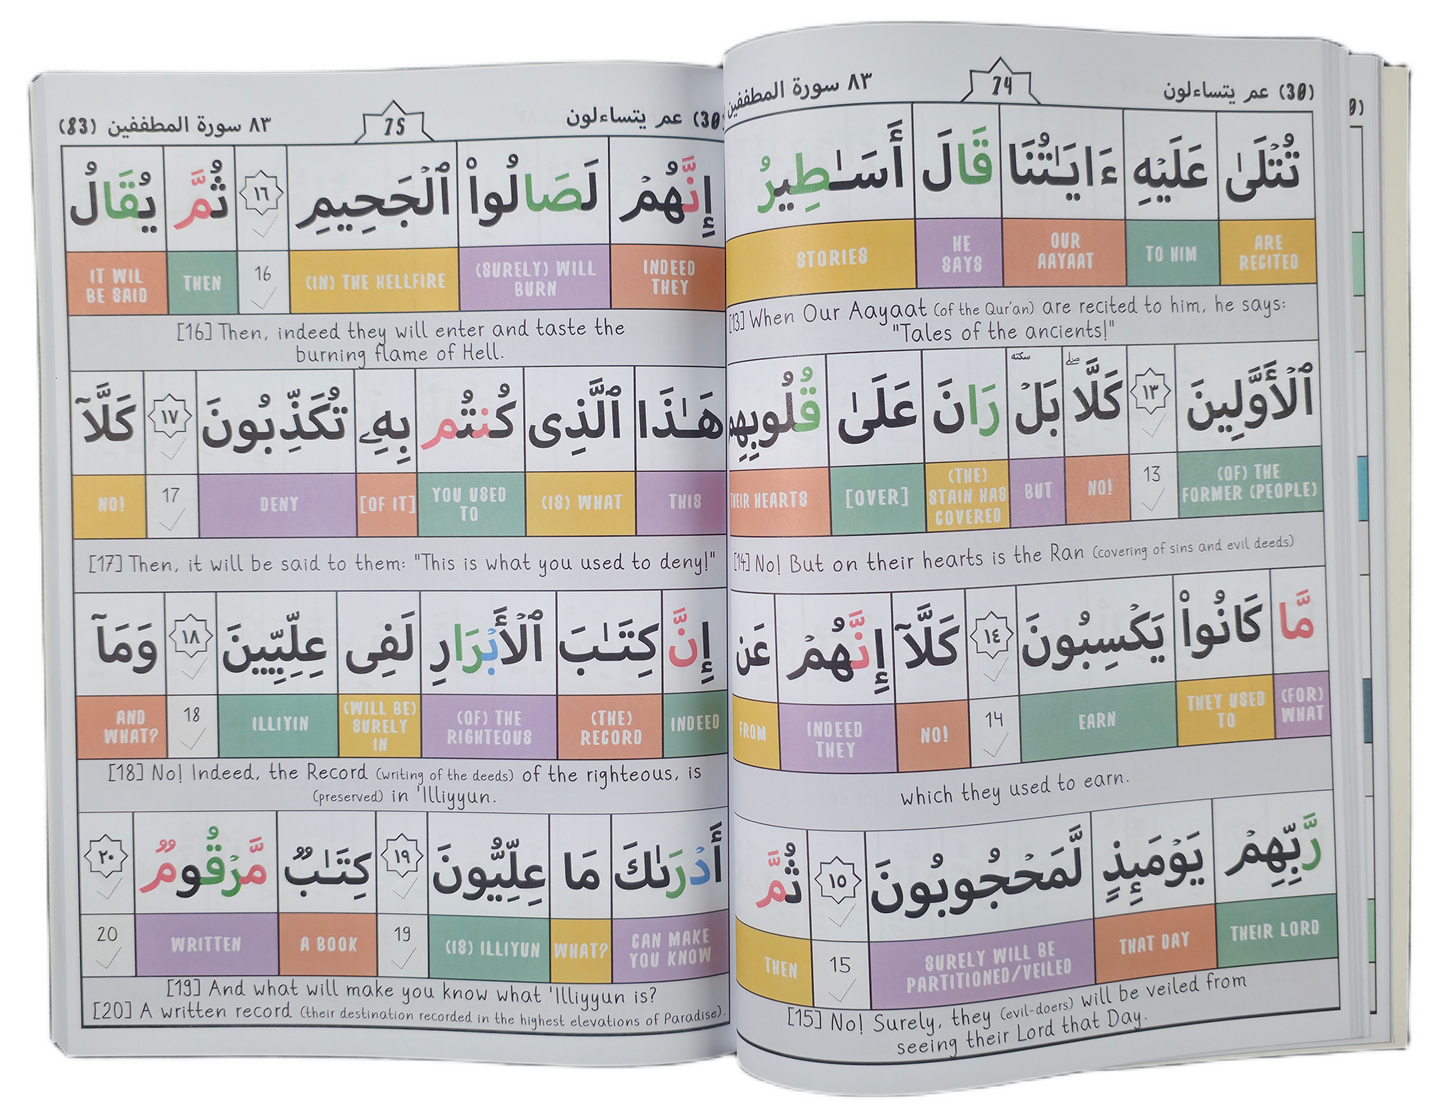 (30) عم يتساءلون
74
٨٣ سورة المطففين
تُتْلَىٰ عَلَيْهِ ءَايَـٰتُنَا قَالَ أَسَـٰطِيرُ
ARE RECITED TO HIM OUR AAYAAT HE SAYS STORIES
[13] When Our Aayaat (of the Qur'an) are recited to him, he says:
"Tales of the ancients!"
ٱلْأَوَّلِينَ ١٣ كَلَّا ۖ بَلْ ۜ رَانَ عَلَىٰ قُلُوبِهِم
سكته
(OF) THE FORMER (PEOPLE) 13 NO! BUT (THE) STAIN HAS COVERED [OVER] THEIR HEARTS
[14] No! But on their hearts is the Ran (covering of sins and evil deeds)
مَّا كَانُوا۟ يَكْسِبُونَ ١٤ كَلَّآ إِنَّهُمْ عَن
(FOR) WHAT THEY USED TO EARN 14 NO! INDEED THEY FROM
which they used to earn.
رَّبِّهِمْ يَوْمَئِذٍ لَّمَحْجُوبُونَ ١٥ ثُمَّ
THEIR LORD THAT DAY SURELY WILL BE PARTITIONED/VEILED 15 THEN
[15] No! Surely, they (evil-doers) will be veiled from
seeing their Lord that Day.
(30) عم يتساءلون
75
٨٣ سورة المطففين (83)
إِنَّهُمْ لَصَالُوا۟ ٱلْجَحِيمِ ١٦ ثُمَّ يُقَالُ
INDEED THEY (SURELY) WILL BURN (IN) THE HELLFIRE 16 THEN IT WIL BE SAID
[16] Then, indeed they will enter and taste the
burning flame of Hell.
هَـٰذَا ٱلَّذِى كُنتُم بِهِۦ تُكَذِّبُونَ ١٧ كَلَّآ
THIS (IS) WHAT YOU USED TO [OF IT] DENY 17 NO!
[17] Then, it will be said to them: "This is what you used to deny!"
إِنَّ كِتَـٰبَ ٱلْأَبْرَارِ لَفِى عِلِّيِّينَ ١٨ وَمَآ
INDEED (THE) RECORD (OF) THE RIGHTEOUS (WILL BE) SURELY IN ILLIYIN 18 AND WHAT?
[18] No! Indeed, the Record (writing of the deeds) of the righteous, is
(preserved) in 'Illiyyun.
أَدْرَىٰكَ مَا عِلِّيُّونَ ١٩ كِتَـٰبٌ مَّرْقُومٌ ٢٠
CAN MAKE YOU KNOW WHAT? (IS) ILLIYUN 19 A BOOK WRITTEN 20
[19] And what will make you know what 'Illiyyun is?
[20] A written record (their destination recorded in the highest elevations of Paradise).